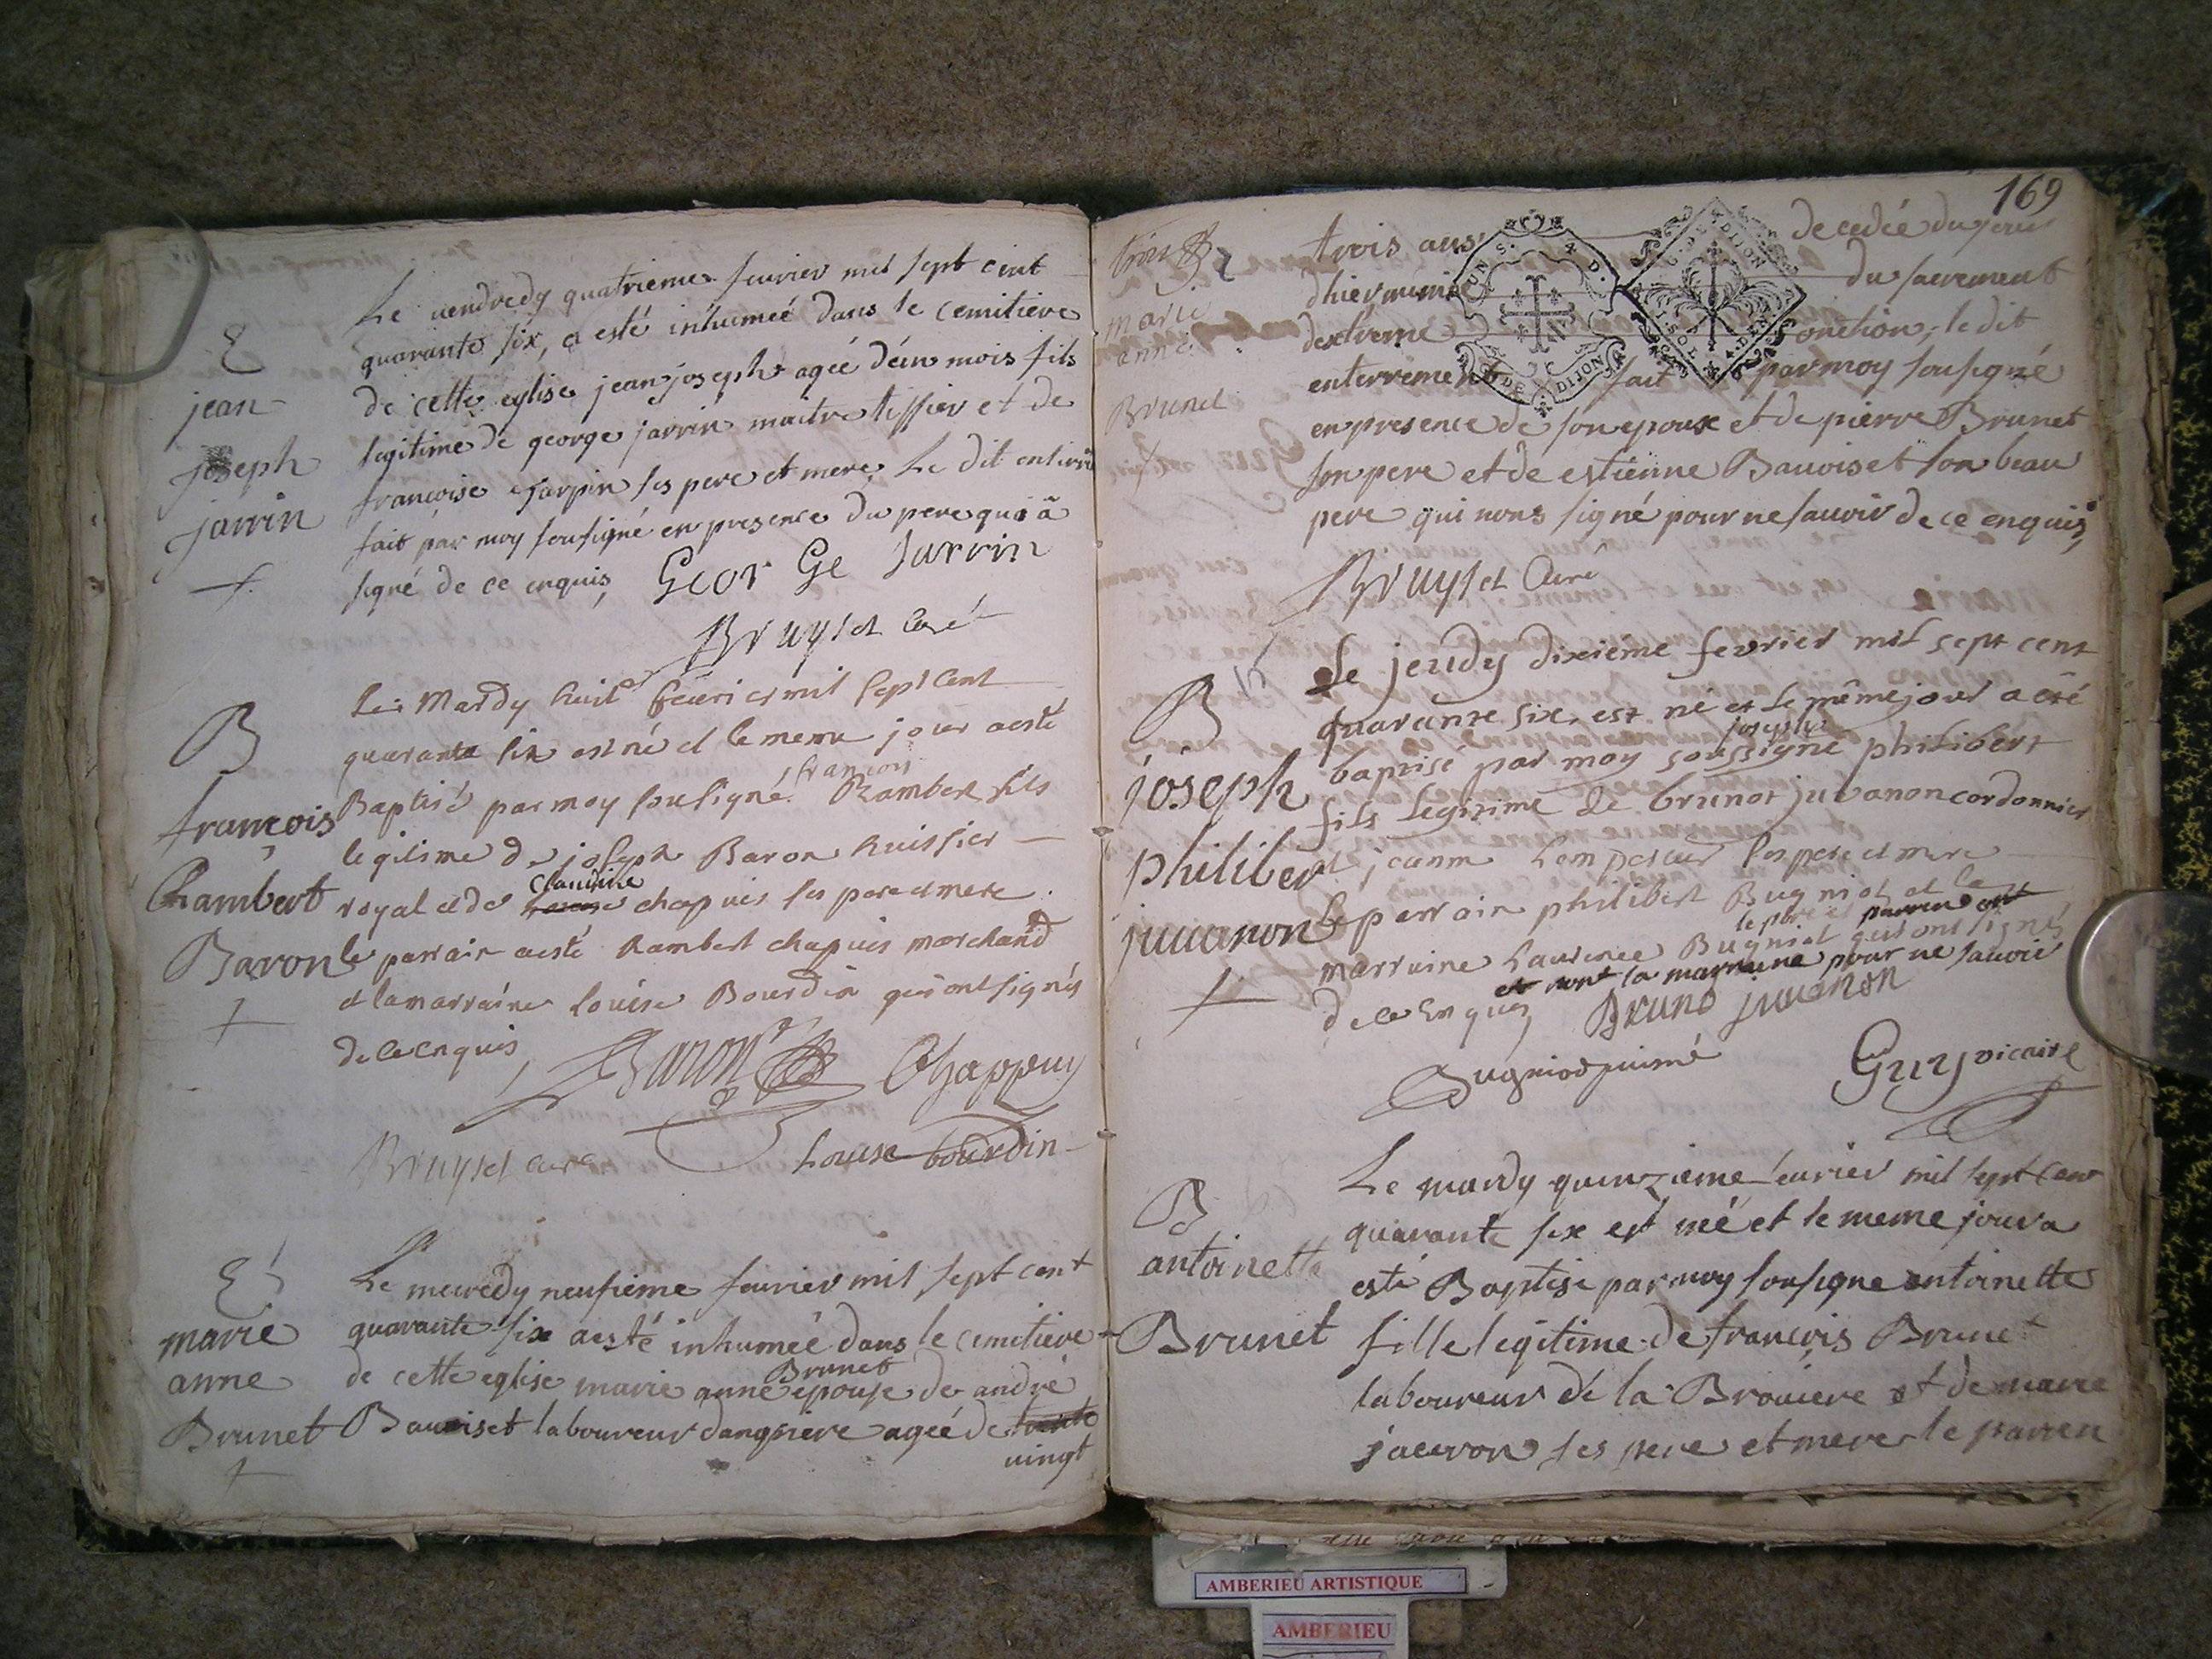 E
jean
joseph
jarrin
Le vendredy quatrieme fevrier mil sept cent
quarante six, a esté inhumeé dans le cemitiere
de cette eglise jean joseph ageé deun mois fils
legitime de george jarrin maitre tissier et de
françoise jarpin ses pere et mere. Le dit enterre
fait par moy sousigné en presence du pere qui ã
signé de ce enquis, GeorGe Jarrin
Bruyset Curé
B
françois
Rambert
Baron
Le Mardy huit fevrier mil sept cent
quarante six est né et le meme jour a esté
françois
Baptisé par moy sousigné Rambert fils
legitime de joseph Baron huissier
claudine
royal et de chapuis ses pere et mere
le parrain a esté Rambert chapuis marchand
et la marraine Louise Bourdin qui ont signés
de ce enquis
Baron Chappuy
Bruyset curé Louise bourdin
E
marie
anne
Brunet
Le mecredy neufieme fevrier mil sept cent
quarante six a esté inhumeé dans le cemitiere
Brunet
de cette eglise marie anne epouse de andre
Bauoiset laboureur dangriere ageé de trente
vingt
169
marie
anne
Brunet
trois ans decedée du jour
dhier munie du sacrement
dextreme onction, le dit
enterrement fait par moy sousigné
en presence de son epoux et de pierre Brunet
son pere et de estienne Bauoiset son beau
pere qui nons signé pour ne sauoir de ce enquis,
Bruyset Curé
UNS. 4 D.
G. DE DIJON
G. DE DIJON
1 SOL 4 DEN
B
joseph
philibert
juuanon
Le jeudy dixiême fevrier mil sept cent
quarante six, est né et le même jour a été
joseph
baptisé par moy soussigné philibert
fils legitime de brunot juvanon cordonnier
et jeanne Lempereur ses pere et mere
le parrain philibert Bugniot et la
le pere et parrain ont
marraine Laurence Bugniot qui ont signés
et nont la marraine pour ne sauoir
de ce Enquis Bruno juuanon
Bugniod puiné Guy vicaire
B
antoinette
Brunet
Le mardy quinzieme fevrier mil sept cent
quarante six est neé et le meme jour a
esté Baptise par moy sousigne antoinette
fille legitime de françois Brunet
laboureur de la Brouiere et de marie
jaceron ses pere et mere le parren
AMBERIEU ARTISTIQUE
AMBERIEU